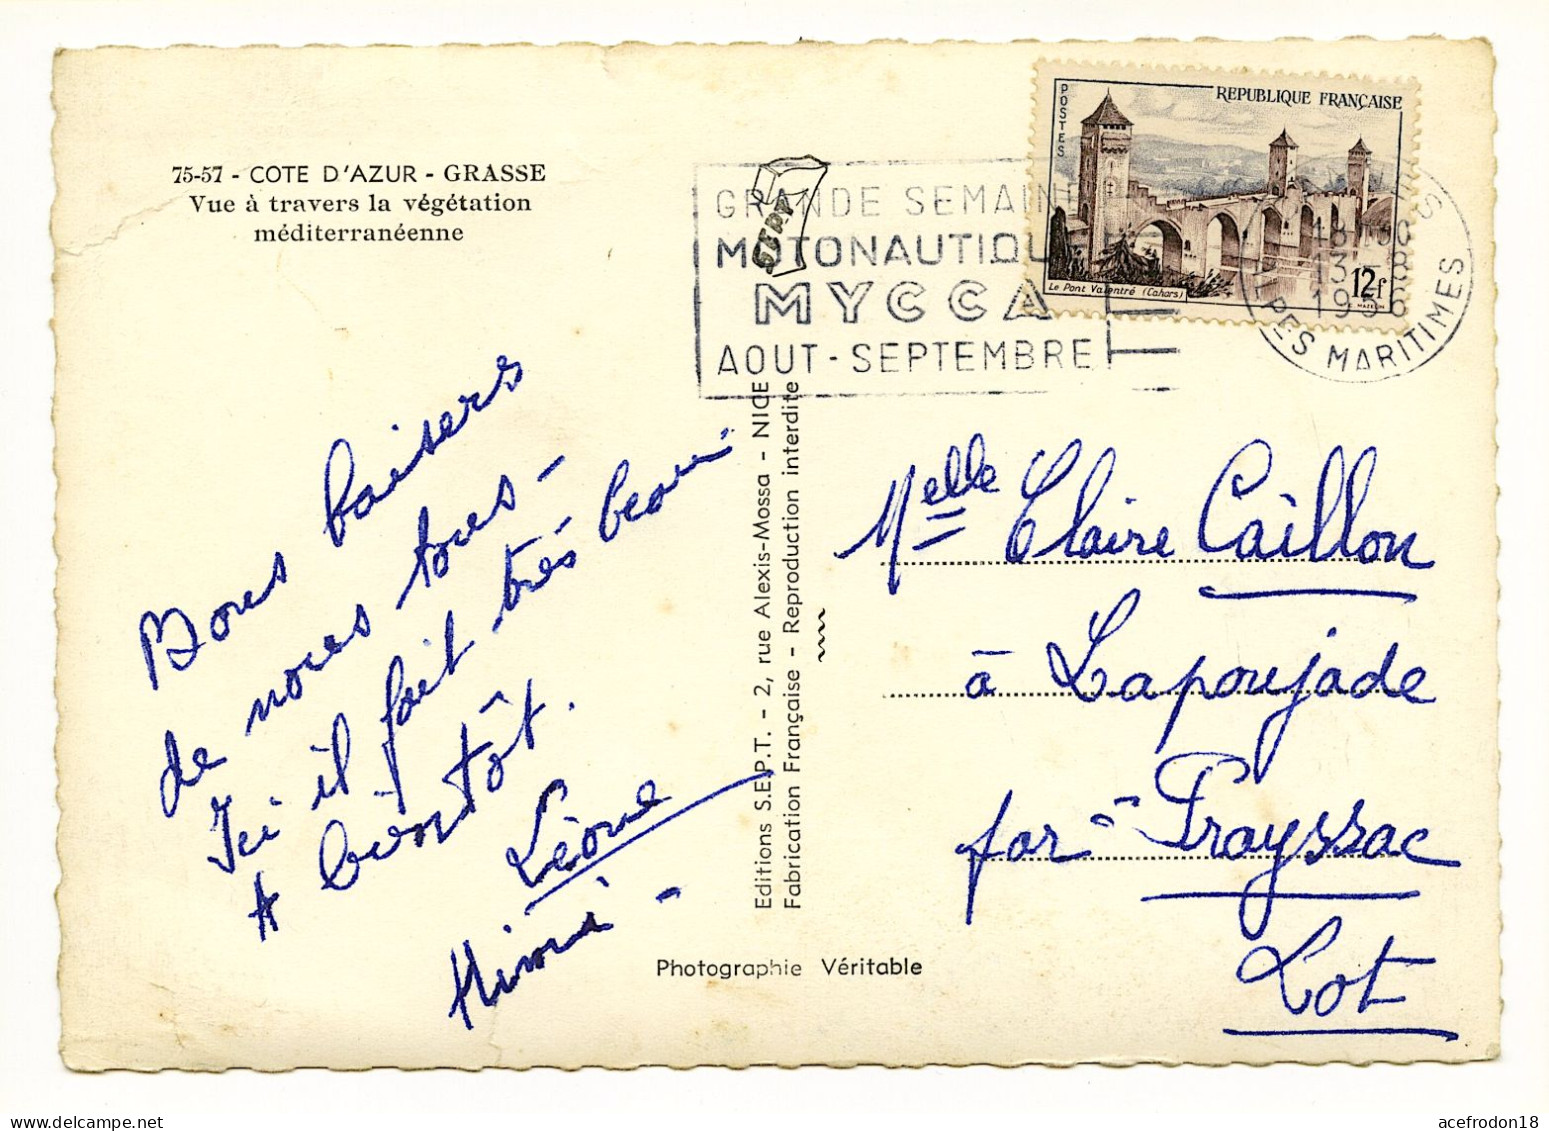 75-57 - COTE D'AZUR - GRASSE
Vue à travers la végétation
méditerranéenne
GRANDE SEMAINE
MOTONAUTIQUE
MYCCA
AOUT - SEPTEMBRE
SEPT
POSTES
REPUBLIQUE FRANÇAISE
Le Pont Valentré (Cahors)
12f
18 H 30
13 - 8
1956
ALPES MARITIMES
Bons baisers
de nous tous -
Ici il fait très beau
A bientôt.
Léone
Mimi -
Editions S.E.P.T. - 2, rue Alexis-Mossa - NICE
Fabrication Française - Reproduction interdite
Photographie Véritable
Melle Claire Caillon
à Lapoujade
par - Prayssac
Lot
acefrodon18